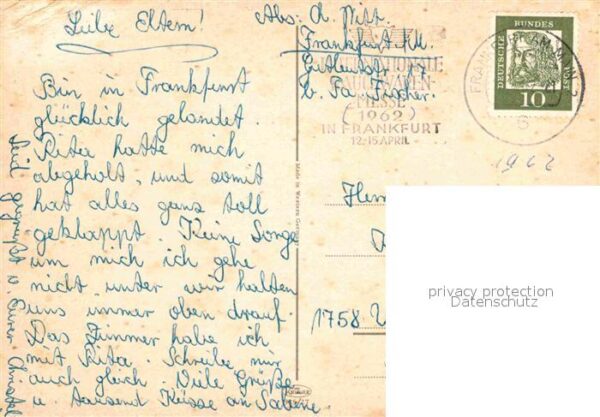 Liebe Eltern!
Bin in Frankfurt
glücklich gelandet.
Rita hatte mich
abgeholt, und somit
hat alles ganz toll
geklappt. Keine Sorge
um mich ich gehe
nicht unter wir halten
uns immer oben drauf.
Das Zimmer habe ich
mit Rita. Schreibe mir
auch gleich. Viele Grüße
u. tausend Küsse an Sabine
Seid gegrüßt v. Eurer Christel
Abs: Ch. Witt.
Frankfurt/M.
Gutleutstr. 77
b. Fa. Fischer.
MESSE
(1962)
IN FRANKFURT
12.-15. APRIL
DEUTSCHE BUNDESPOST
10
FRANKFURT AM MAIN 2
1962
Made in Western Germany
1758
privacy protection
Datenschutz